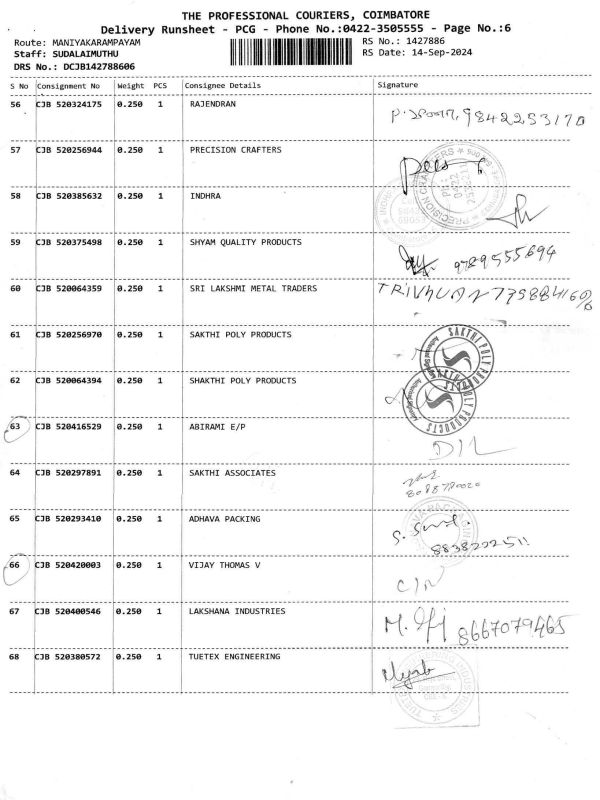 THE PROFESSIONAL COURIERS, COIMBATORE
Delivery Runsheet - PCG - Phone No.:0422-3505555 - Page No.:6
Route: MANIYAKARAMPAYAM RS No.: 1427886
Staff: SUDALAIMUTHU RS Date: 14-Sep-2024
DRS No.: DCJB142788606
S No Consignment No Weight PCS Consignee Details Signature
56 CJB 520324175 0.250 1 RAJENDRAN
9842253170
57 CJB 520256944 0.250 1 PRECISION CRAFTERS
PRECISION CRAFTERS
58 CJB 520385632 0.250 1 INDHRA
59 CJB 520375498 0.250 1 SHYAM QUALITY PRODUCTS
9789555694
60 CJB 520064359 0.250 1 SRI LAKSHMI METAL TRADERS
61 CJB 520256970 0.250 1 SAKTHI POLY PRODUCTS
SAKTHI POLY PRODUCTS
Authorised
62 CJB 520064394 0.250 1 SHAKTHI POLY PRODUCTS
SAKTHI POLY PRODUCTS
Authorised
63 CJB 520416529 0.250 1 ABIRAMI E/P
D/L
64 CJB 520297891 0.250 1 SAKTHI ASSOCIATES
65 CJB 520293410 0.250 1 ADHAVA PACKING
8838222511
66 CJB 520420003 0.250 1 VIJAY THOMAS V
C/N
67 CJB 520400546 0.250 1 LAKSHANA INDUSTRIES
8667079465
68 CJB 520380572 0.250 1 TUETEX ENGINEERING